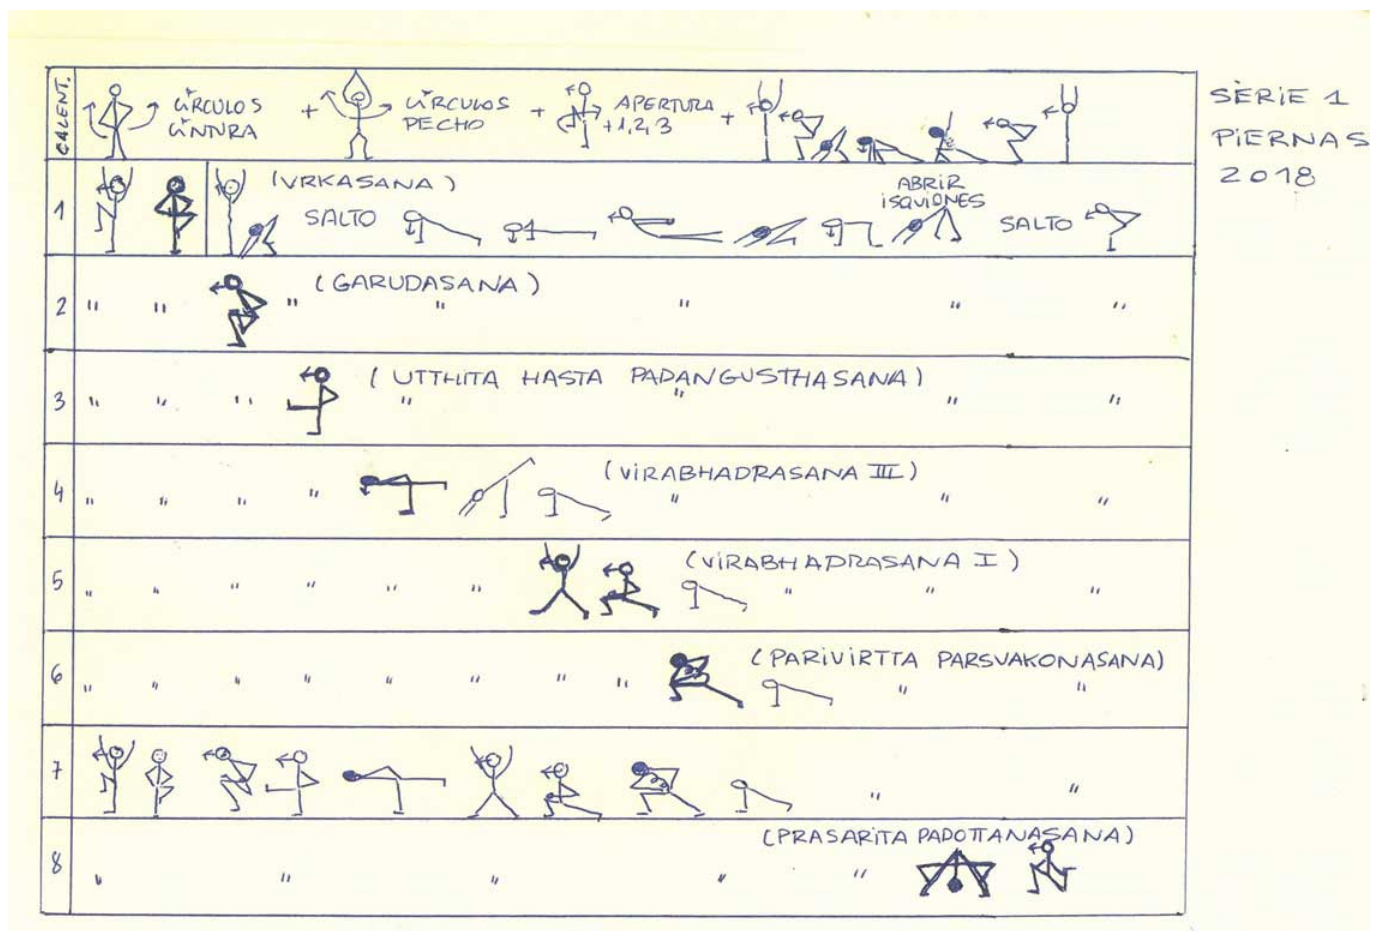 SÈRIE 1
PIERNAS
2018
CALENT.
CÍRCULOS
CINTURA
+
CÍRCULOS
PECHO
+
APERTURA
+1,2,3
+
1
(VRKASANA)
SALTO
ABRIR
ISQUIONES
SALTO
2 " " " (GARUDASANA) " " " "
3 " " " (UTTHITA HASTA PADANGUSTHASANA) " " " "
4 " " " " (VIRABHADRASANA III) " " "
5 " " " " " " (VIRABHADRASANA I) " " "
6 " " " " " " " " (PARIVIRTTA PARSVAKONASANA) " "
7 " "
(PRASARITA PADOTTANASANA)
8 " " " " "